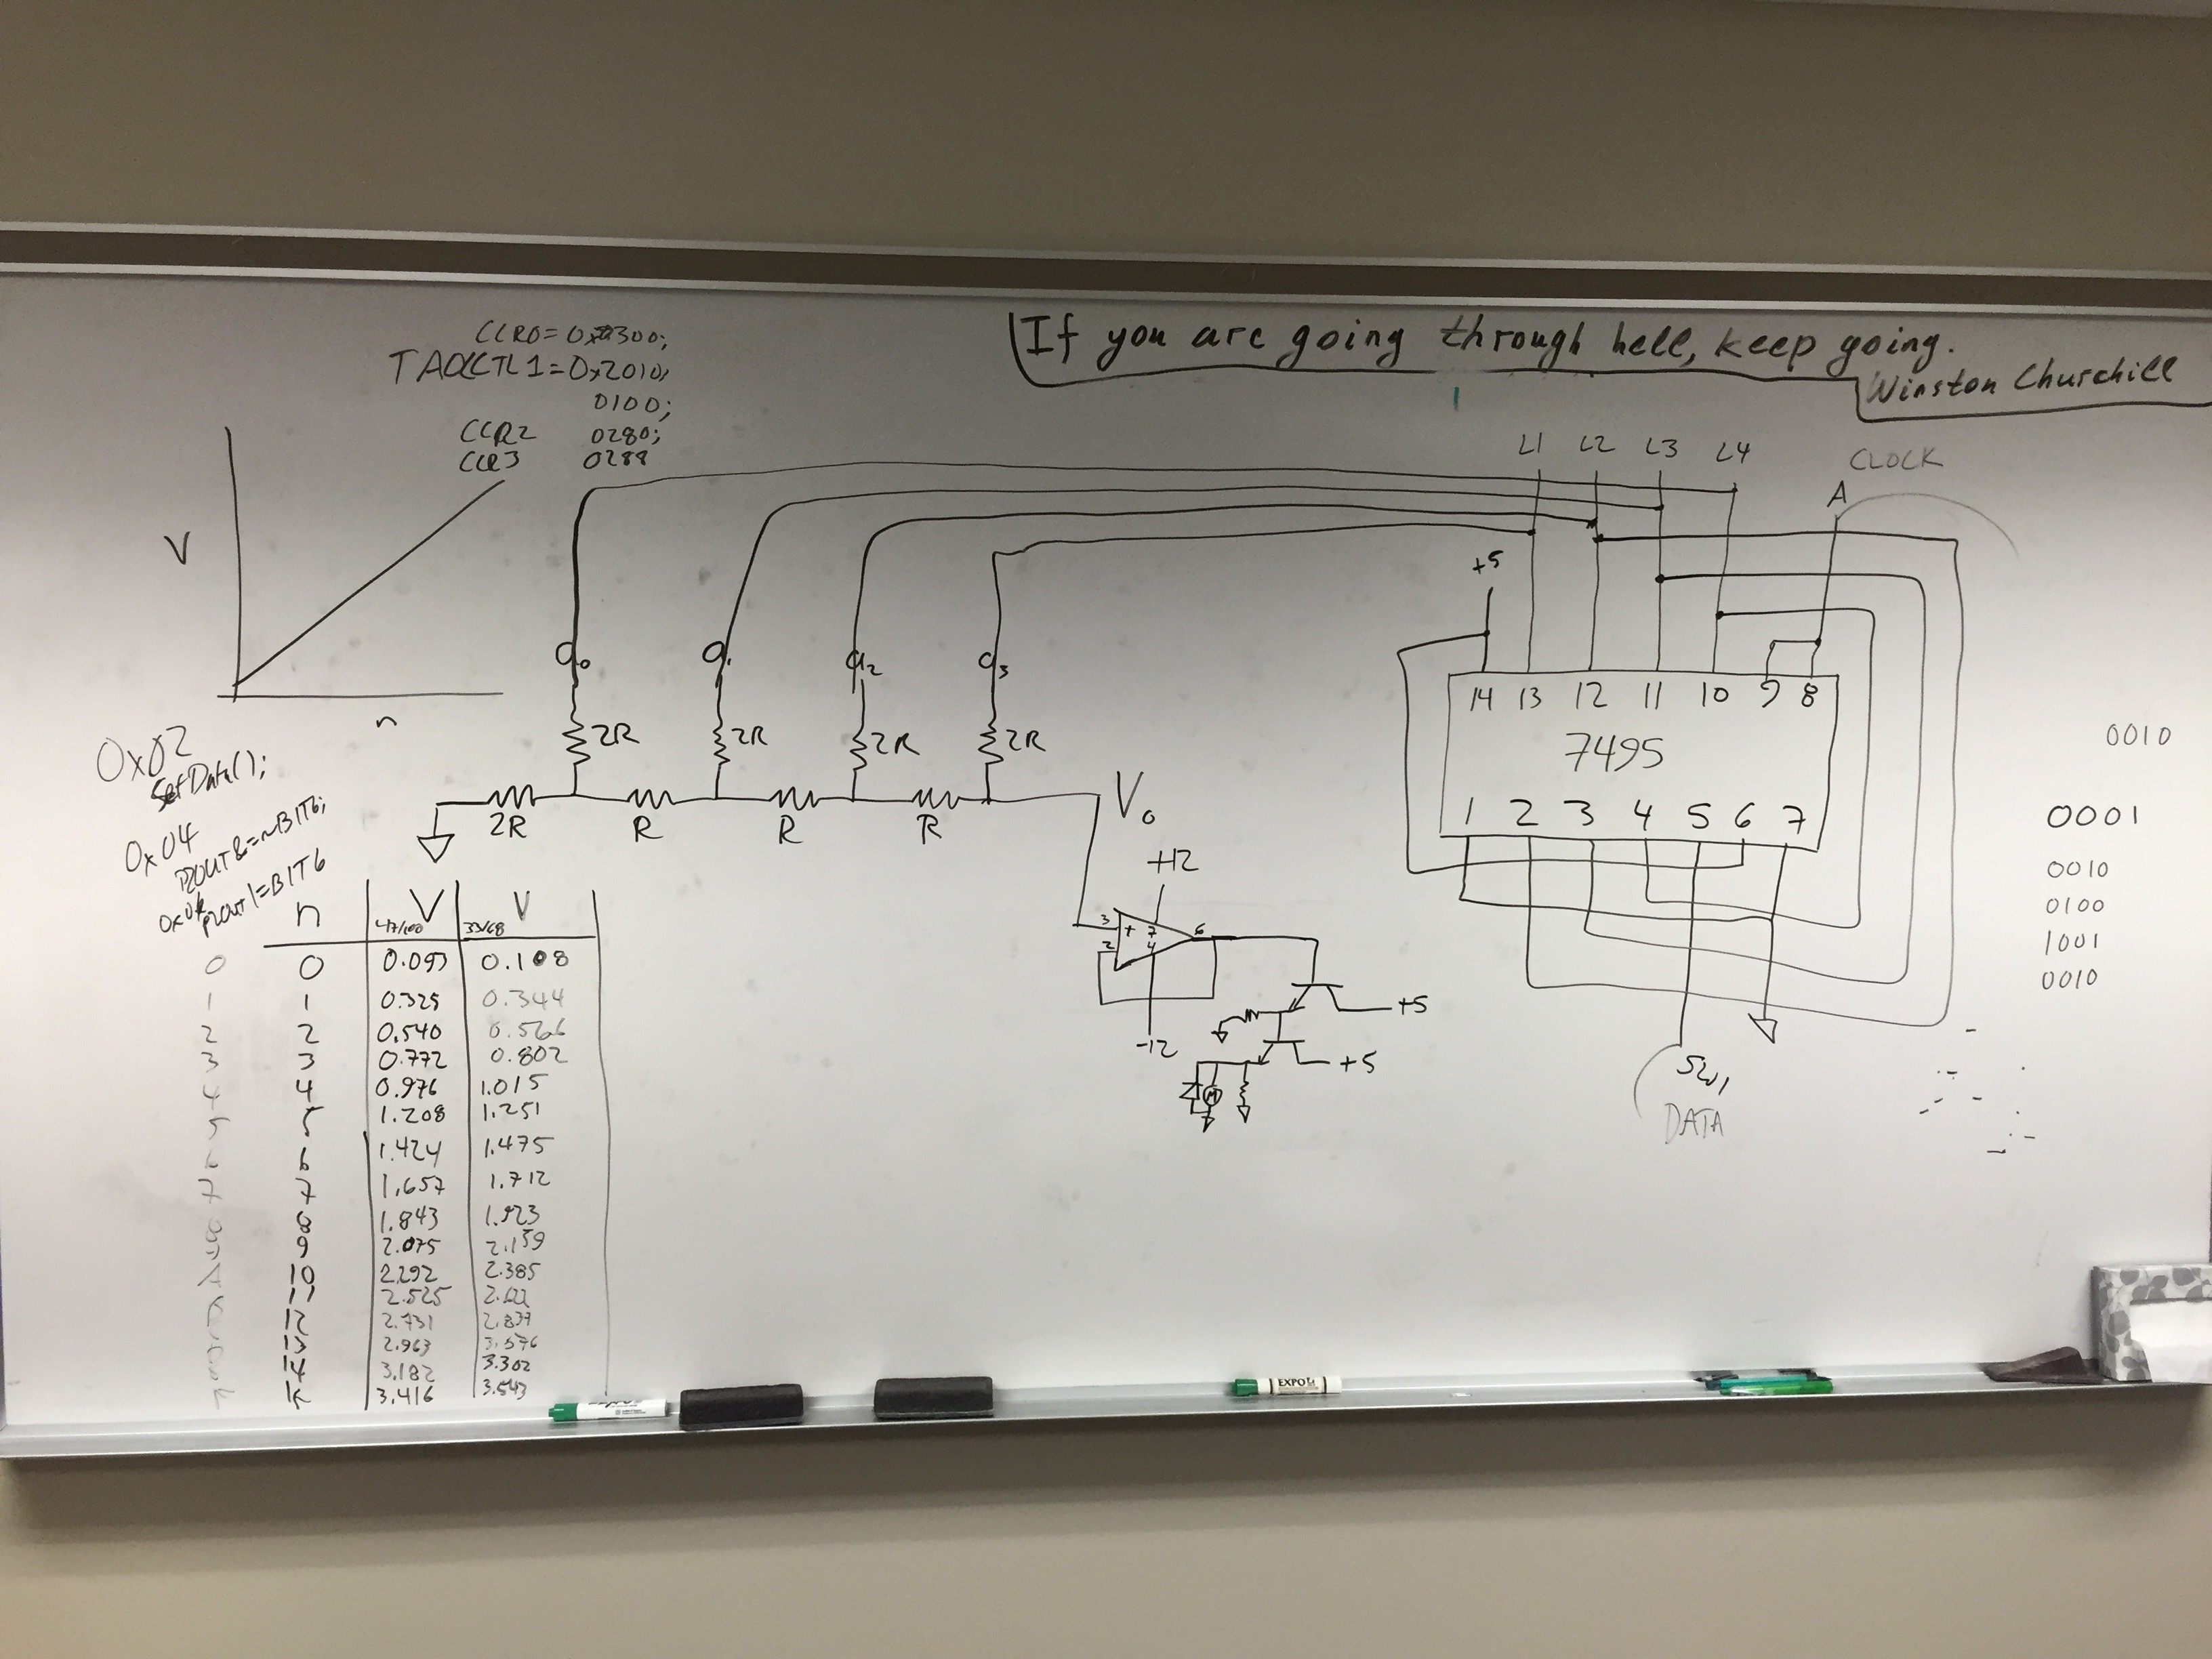 If you are going through hell, keep going.
Winston Churchill
CCR0=0x0300;
TA0CCTL1=0x2010;
0100;
CCR2 0280;
CCR3 0288
V
n
0x02
SetData();
0x04
P2OUT&=~BIT6;
P2OUT|=BIT6
a0 a1 a2 a3
2R 2R 2R 2R
2R R R R
V0
+12
3 + 7 6
2 4
-12
+5
+5
M
L1 L2 L3 L4
CLOCK
A
+5
14 13 12 11 10 9 8
7495
1 2 3 4 5 6 7
SW1
DATA
0010
0001
0010
0100
1001
0010
n V V
47/100 33/68
0 0 0.093 0.108
1 1 0.325 0.344
2 2 0.540 0.566
3 3 0.772 0.802
4 4 0.976 1.015
5 5 1.208 1.251
6 6 1.424 1.475
7 7 1.657 1.712
8 8 1.843 1.923
9 9 2.075 2.159
A 10 2.292 2.385
11 2.525
12 2.731
13 2.963
14 3.182 3.302
15 3.416 3.543
EXPO